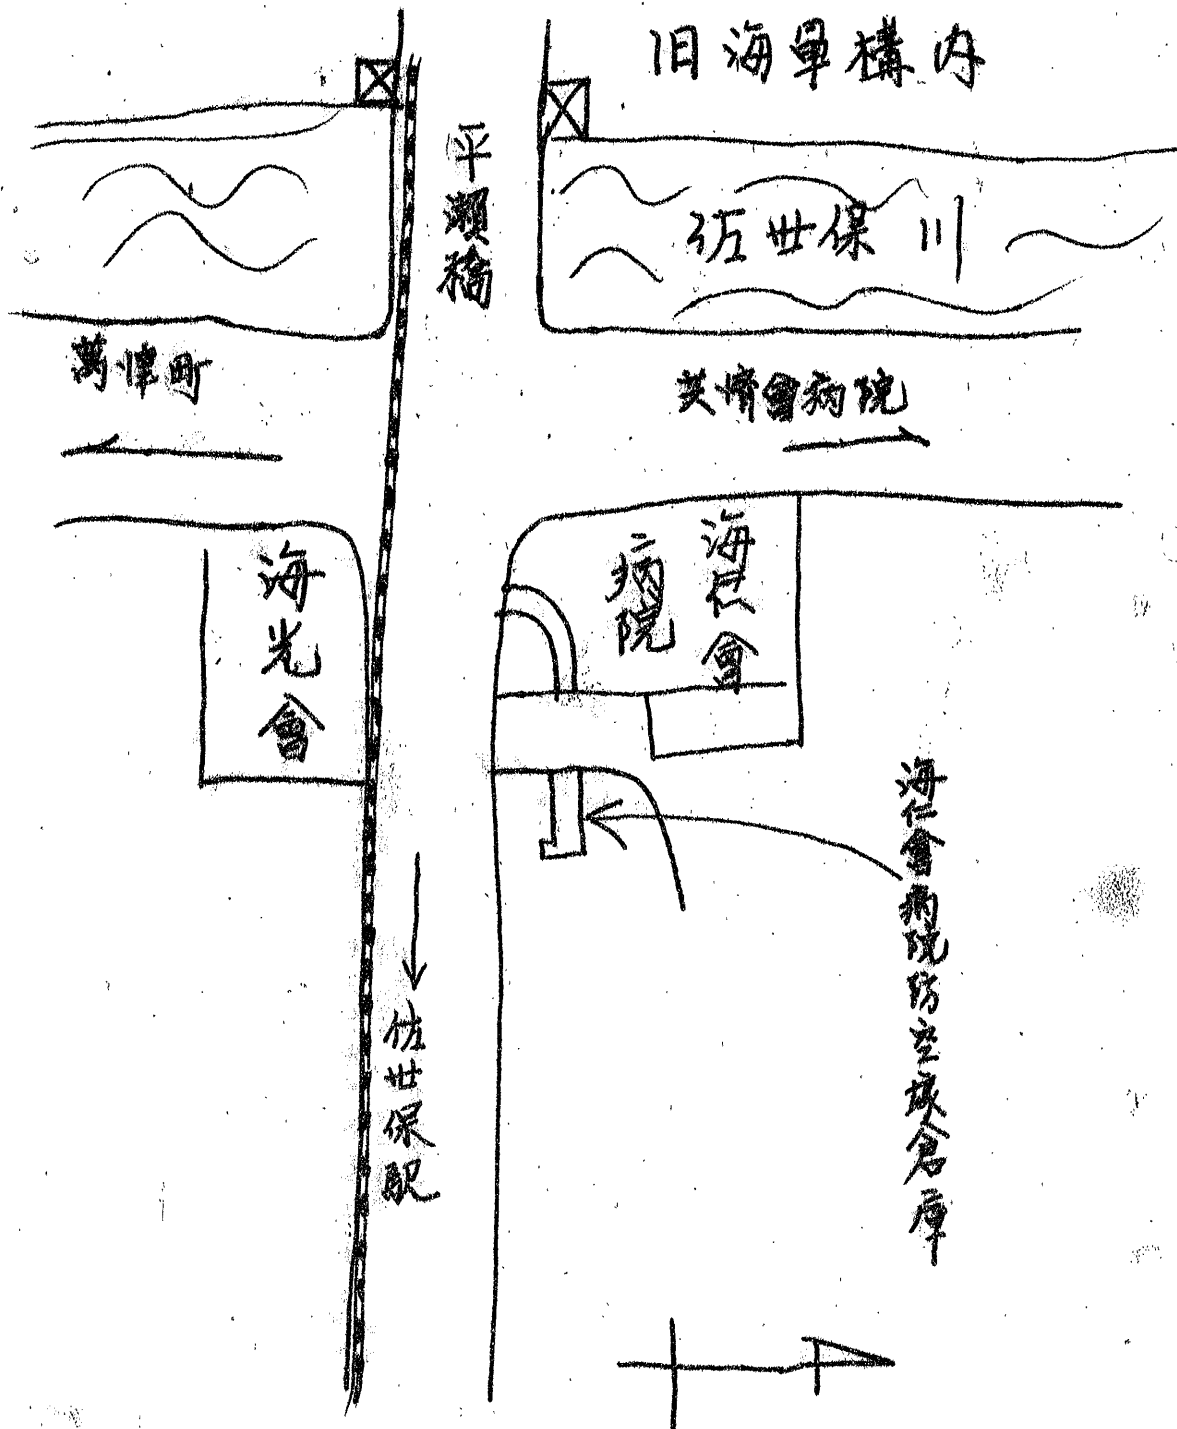 旧海軍構内
平瀬橋
佐世保川
萬津町
共済會病院
海仁會
病院
海光會
海仁會病院防空壕倉庫
佐世保駅